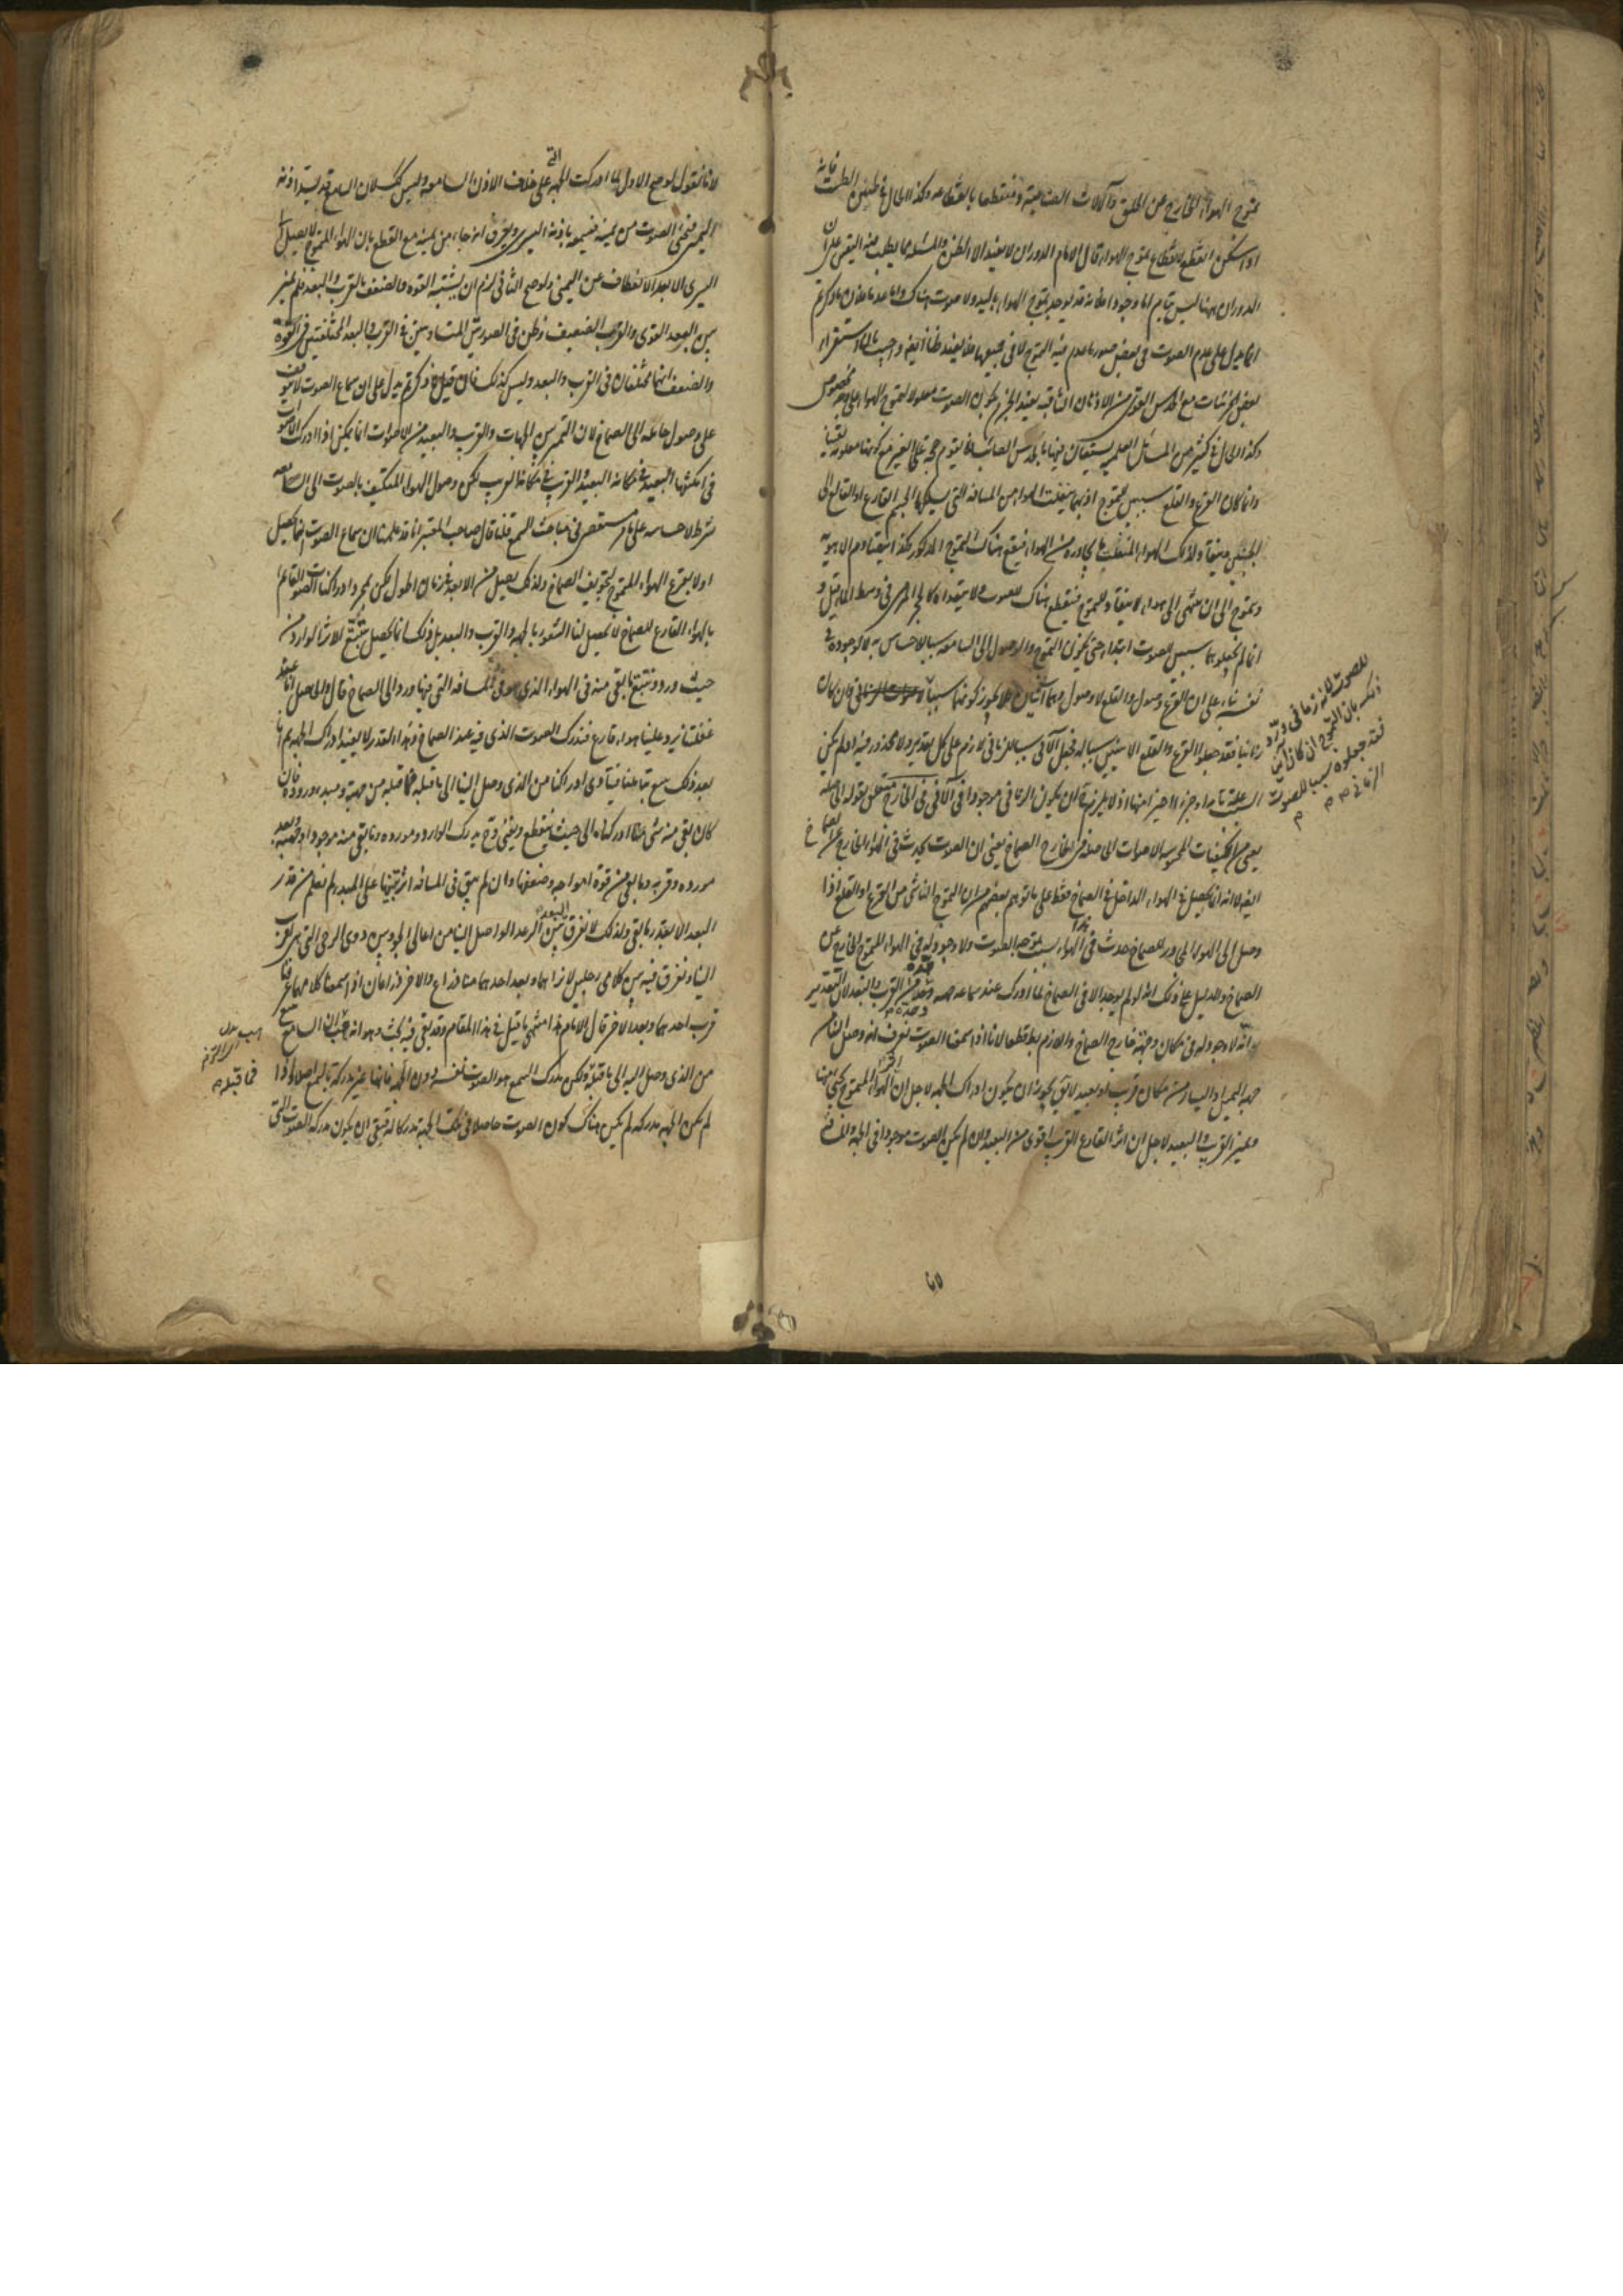 تموج الهواء الخارج من الحلق والآلات الصناعية ومنقطعا بانقطاعه وكذا الحال في طنين الطست فانه
اذا سكن انقطع لانقطاع تموج الهواء قال الامام الدوران لا يفيد الا الظن والمسئلة مما يطلب فيه اليقين على ان
الدوران ههنا ليس بتام اما وجودا فلانه قد يوجد تموج الهواء باليد ولا صوت هناك واما عدما فلان ما ذكرتم
انما يدل على عدم الصوت في بعض صور عدم فيه التموج لا في جميعها فلا يفيد ظنا ايضا واجيب بان استقراء
بعض الجزئيات مع الحدس القوي من الاذهان الثاقبة يفيد الجزم بكون الصوت معلولا لتموج الهواء على وجه مخصوص
وكذا الحال في كثير من المسائل العلمية يستعان فيها بالحدس الصائب فلا تقوم حجة على الغير مع كونها معلومة يقينا
وانما كان القرع والقلع سببين للتموج اذ بهما ينفلت الهواء من المسافة التي يسلكها الجسم القارع او المقلوع الى
الجنبين وينقاد لذلك الهواء المنفلت ما يجاوره من الهواء فيقع هناك التموج المذكور وهكذا يتقادم الاهوية
وتموج الى ان ينتهي الى هواء لا ينقاد للتموج فينقطع هناك الصوت ولا يتعداه كالحجر المرمي في وسط الماء قيل و
انما لم يجعلوهما سببين للصوت ابتداء حتى يكون التموج والوصول الى السامعة سببا للاحساس به لا لوجوده في
نفسه بناء على ان القرع وصول والقلع لا وصول وهما آنيان فلا يجوز كونهما سببا فان كان
للصوت لانه زماني ورد
ذلك بان التموج ان كان آنيا
فقد جعلوه سببا للصوت
الزماني م م
زمانيا فقد جعلوا القرع والقلع الآنيين سببا له فجعل الآني سببا للزماني لازم على كل تقدير ولا محذور فيه اذا لم يكن
السبب علة تامة او جزءا اخيرا منها اذ لا يلزم ان يكون الزماني موجودا في الآن في الخارج متعلق بقوله
يعني من الكيفيات المحسوسة الاصوات الحاصلة في الخارج الصماخ يعني ان الصوت يحدث في الهواء الخارج عن الصماخ
ايضا لا انه انما يحصل في الهواء الداخل في الصماخ فقط على ما توهمه بعضهم من ان التموج الناشي من القرع او القلع اذا
وصل الى الهواء المجاور للصماخ حدث في هذا الهواء بسبب تموجه الصوت ولا وجود له في الهواء المتموج الخارج عن
الصماخ والدليل على ذلك انه لو لم يوجد الا في الصماخ لما ادرك عند سماعه جهته وحده من القرب والبعد لان التقدير
انه لا وجود له في مكان وجهة خارج الصماخ واللازم بط قطعا لانا اذا سمعنا الصوت نعرف انه وصل الينا من
جهة اليمين واليسار ومن مكان قريب او بعيد لا يق يجوز ان يكون ادراك الجهة لاجل ان الهواء المتموج يجيء منها
وتميز القريب والبعيد لاجل ان اثر القارع القريب اقوى من البعيد وان لم يكن الصوت موجودا في الجهة والمسافة
لانا
لانا نقول لو صح الاول لما ادركت الجهة التي على خلاف الاذن السامعة وليس كك لان السامع قد يسد اذنه
اليمنى فيجيء الصوت من يمينه فيسمعه باذنه اليسرى ويعرف انه جاء من يمينه مع القطع بان الهواء المتموج لا يصل الى
اليسرى الا بعد الانعطاف عن اليمنى ولو صح الثاني لزم ان يشتبه القوة والضعف بالقرب والبعد فلم يميز
بين البعيد القوي والقريب الضعيف وظن في الصورتين المتساويتين في القرب والبعد المختلفتين في القوة
والضعف انهما مختلفان في القرب والبعد وليس كذلك فان قيل ما ذكرتم يدل على ان سماع الصوت لا يتوقف
على وصول حامله الى الصماخ لان التميز بين الجهات والقريب والبعيد من الاصوات انما يمكن اذا ادركت الاصوات
في امكنتها البعيد في مكانه البعيد والقريب في مكانه القريب لكن وصول الهواء المتكيف بالصوت الى السامعة
شرط لاحساسه على ما مر مستقصى في مباحث السمع قلنا قال صاحب المعتبر انا قد علمنا ان سماع الصوت انما يحصل
اولا بقرع الهواء المتموج لتجويف الصماخ ولذلك يصل من الابعد في زمان اطول لكن بمجرد ادراكنا الصوت القائم
بالهواء القارع للصماخ لا يحصل لنا الشعور بالجهة والقرب والبعد بل ذلك انما يحصل بتتبع الاثر الوارد من
حيث ورد ونتتبع ما بقي منه في الهواء الذي هو في المسافة التي فيها ورد الى الصماخ قال والحاصل انا عند
غفلتنا يرد علينا هواء قارع فندرك الصوت الذي فيه عند الصماخ وهذا القدر لا يفيد ادراك الجهة ثم انا
بعد ذلك نتتبعه بتاملنا فيتادى ادراكنا من الذي وصل الينا الى ما قبله فما قبله من جهته ومبدء وروده فان
كان بقي منه شيء متادي ادركناه الى حيث ينقطع ويفنى وح يدرك الوارد ومورده وما بقي منه موجودا وجهته وبعد
مورده وقربه وما بقي من قوة امواجه وضعفها وان لم يبق في المسافة اثر ينتهي على المبدء لم نعلم من قدر
البعد الا بقدر ما بقي ولذلك لا نفرق في البعد بين الرعد الواصل الينا من اعالي الجو وبين دوي الرحى التي هي اقرب
الينا ونفرق فيه بين كلامي رجلين لا نراهما وبعد احدهما منا ذراع والآخر ذراعان اذا سمعنا كلامهما عرفنا
قرب احدهما وبعد الآخر قال الامام هذا منتهى ما قيل في هذا المقام وقد بقي فيه بحث وهو انه هب ان السامع يتتبع
من الذي وصل اليه الى ما قبله فما قبله م ولكن مدرك السمع هو الصوت نفسه دون الجهة فانها غير مدركة بالسمع اصلا واذا
لم يكن الجهة مدركة لم يكن هناك كون الصوت حاصلا في تلك الجهة مدركا له فبقي ان يكون مدركه الصوت الذي